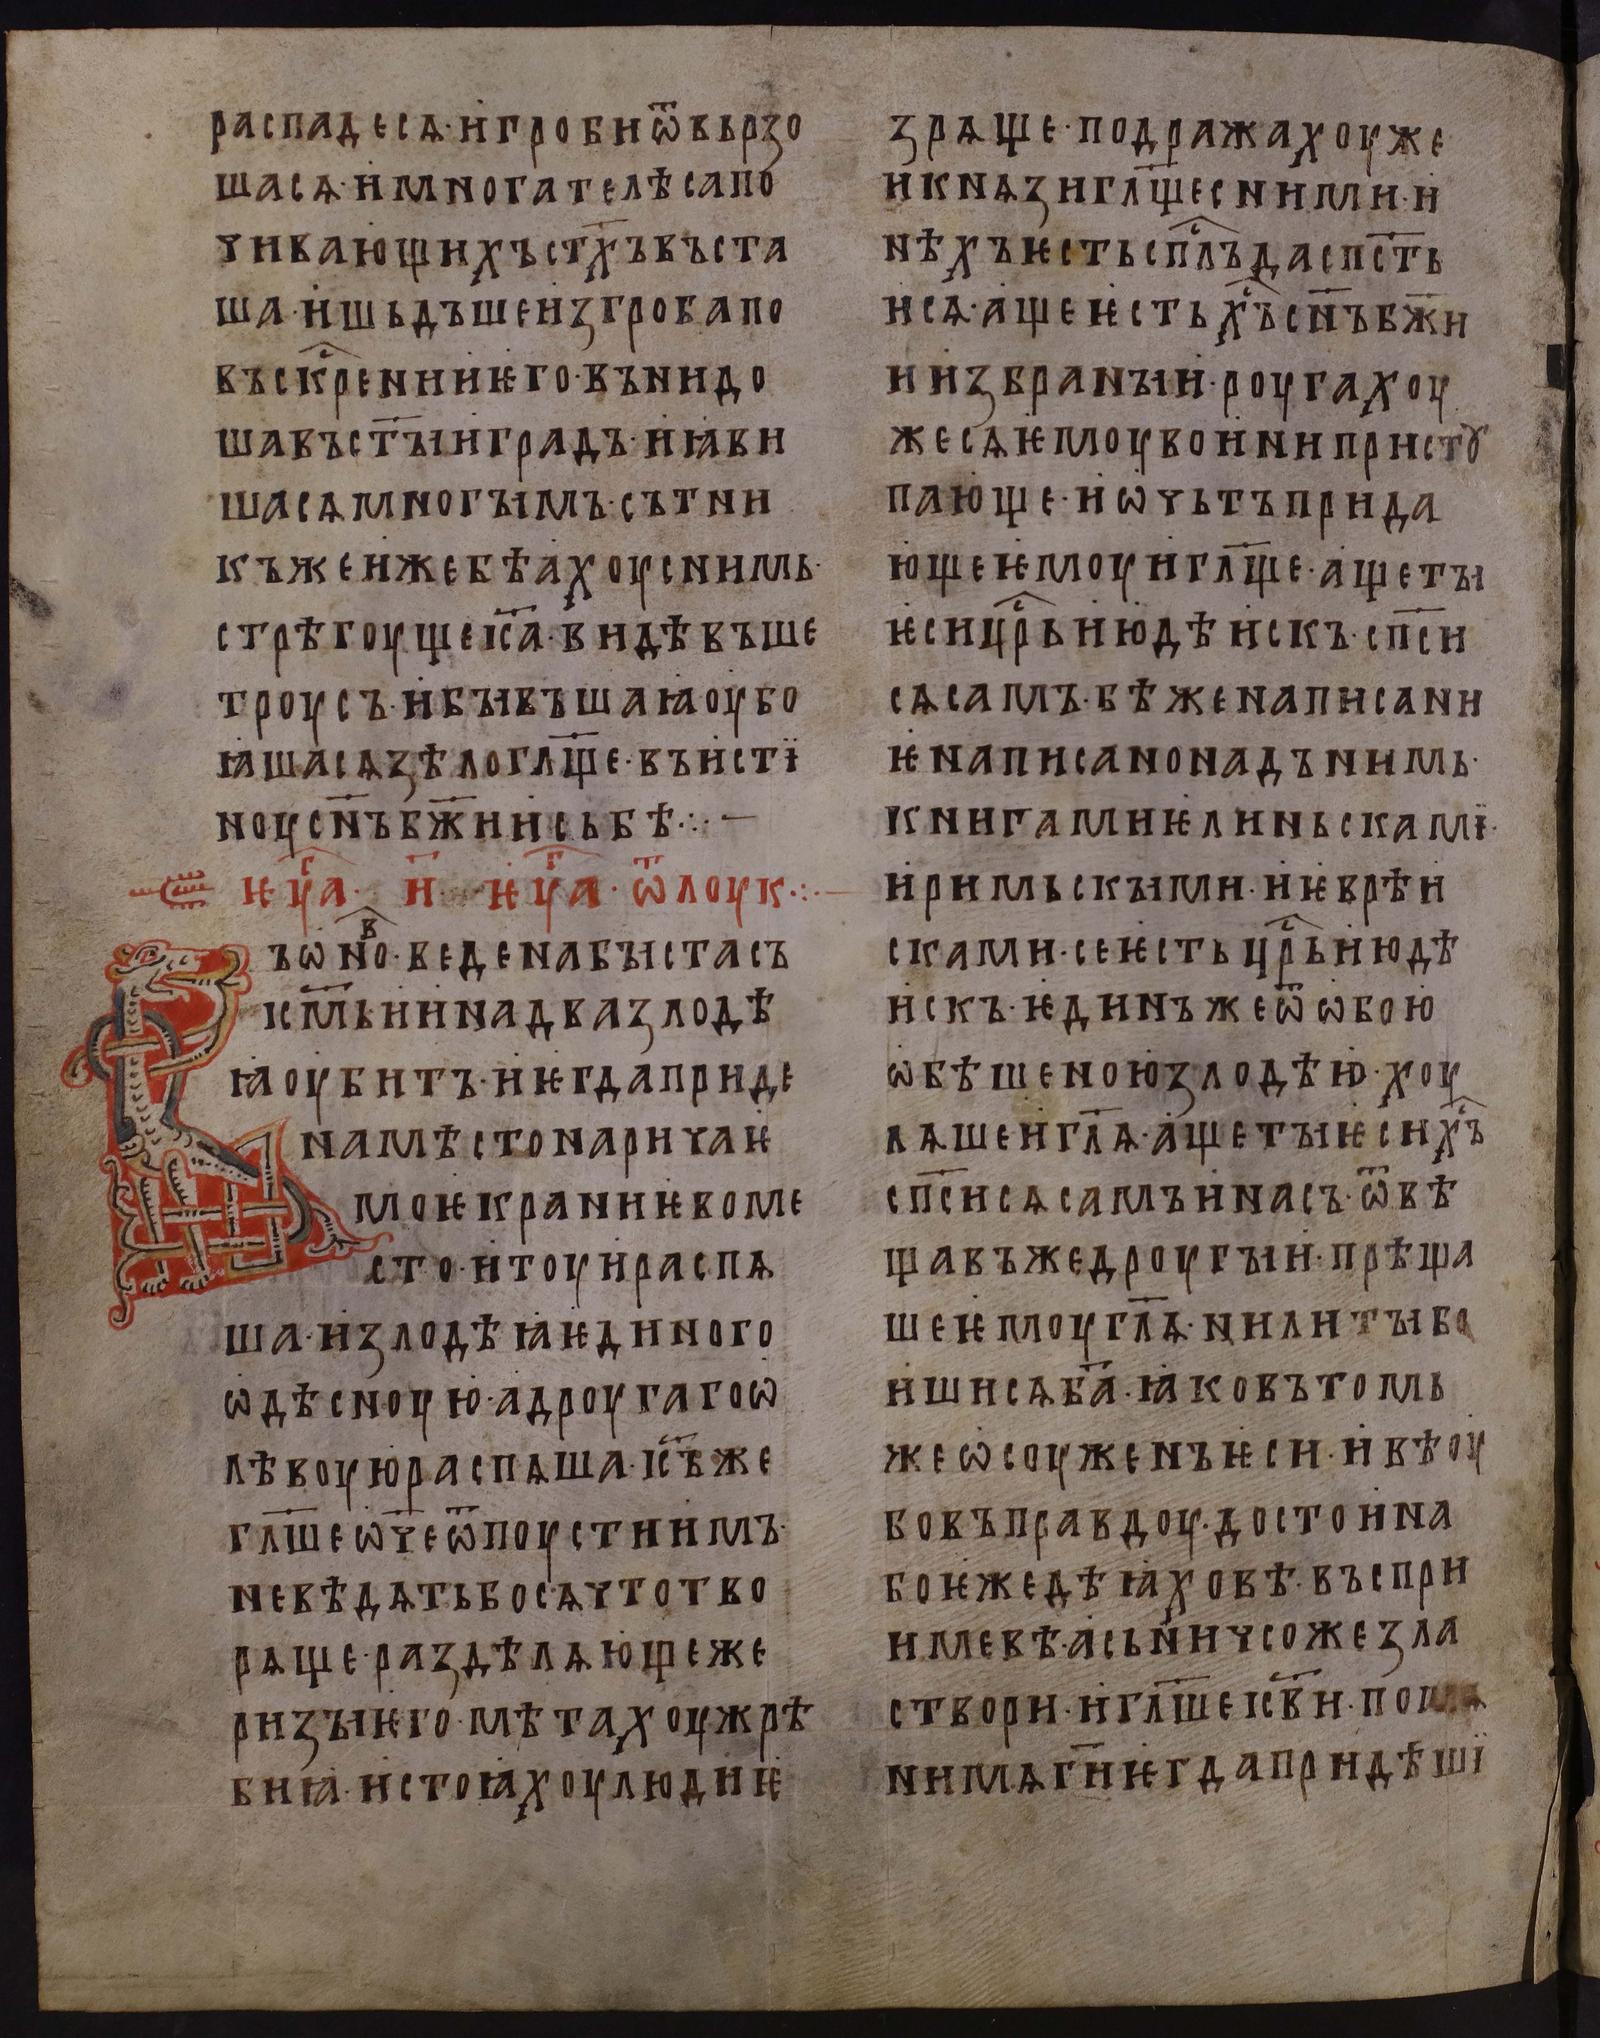 распадесѧ·и гроби ѿвьрзо
шасѧ·и многа телѣса по
чивающихъ ст҃хъ въста
ша·ишьдъше из гроба по
въскр҇ении ѥго·вънидо
ша въ ст҃ыи градъ·и ꙗви
шасѧ многымъ·сътни
къ же иже бѣахоу с нимь·
стрѣгоуще іс҃а·видѣвъше
троусъ·и бывъшаꙗ оубо
ꙗшасѧ зѣло гл҃ще·въ исті
ноу сн҃ъ бж҃ии сь бѣ·:·—
ѥу҃гл а· и҃· ѥу҃гл а· ѿ лоук·:·—
Въ ѡно в҇·ведена быста съ
іс҃мь и ина два злодѣ
ꙗ оубитъ·и ѥгда приде
на мѣсто наричаѥ
моѥ краниѥво ме
сто·и тоу и распѧ
ша·и злодѣꙗ ѥдиного
ѡ дѣсноую·а дроугаго ѡ
лѣвоую распѧша·іс҃ъ же
гл҃ше ѡч҃е ѿпоусти имъ·
не вѣдѧть бо сѧ что тво
рѧще·раздѣлѧюще же
ризы ѥго·мѣтахоу жрѣ
биꙗ·и стоꙗхоу людиѥ
зрѧще·подражахоу же
и кнѧзи гл҃ще с ними·и
нѣхъ ѥсть сп҇лъ да сп҃сть
и сѧ·аще ѥсть х҇ъ сн҃ъ бж҃и
и избраныи·роугахоу
же сѧ ѥмоу вои ни пристꙋ
пающе·и ѡчьтъ прида
юще ѥмоу и гл҃ще·аще ты
ѥси цр҇ь июдѣискъ·сп҃си
сѧ самъ·бѣ же написани
ѥ написано надъ нимь·
книгами ѥлиньскамї·
и римьскыми·и ѥврѣи
сками·се ѥсть цр҇ь июдѣ
искъ·ѥдинъ же ѿ ѡбою
ѡбѣшеною злодѣю·хоу
лѧше и гл҃ѧ·аще ты ѥси х҇ъ
сп҃си сѧ самъ и насъ·ѿвѣ
щавъ же дроугыи·прѣща
ше ѥмоу гл҃ѧ·ни ли ты бо
иши сѧ б҃а·ꙗко въ томь
же ѡсоуженъ ѥси·и вѣ оу
бо въ правдоу·достоина
бо ѥже дѣꙗховѣ·въспри
имевѣ·а сь ни ничсоже зла
створи·и гл҃ше іс҃ви·помѧ
ни мѧ г҃и ѥгда придѣші